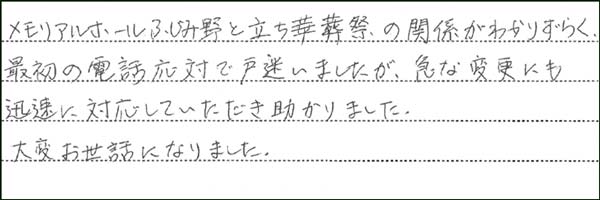 メモリアルホールふじみ野と立ち華葬祭の関係がわかりずらく、
最初の電話応対で戸迷いましたが、急な変更にも
迅速に対応していただき助かりました。
大変お世話になりました。